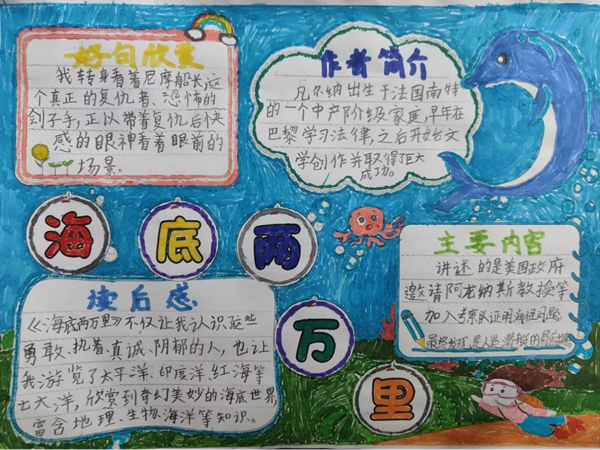 好句欣赏
我转身看着尼摩船长,这
个真正的复仇者、恐怖的
刽子手,正以带着复仇后快
感的眼神看着眼前的
场景。
作者简介
凡尔纳出生于法国南特
的一个中产阶级家庭,早年在
巴黎学习法律,之后开始文
学创作并取得巨大
成功。
海底两万里
读后感
《海底两万里》不仅让我认识这些
勇敢、执着、真诚、阴郁的人,也让
我游览了太平洋、印度洋、红海等
七大洋,欣赏到奇幻美妙的海底世界,
富含地理、生物、海洋等知识。
主要内容
讲述的是美国政府
邀请阿龙纳斯教授等
加入考察队证明海怪问题